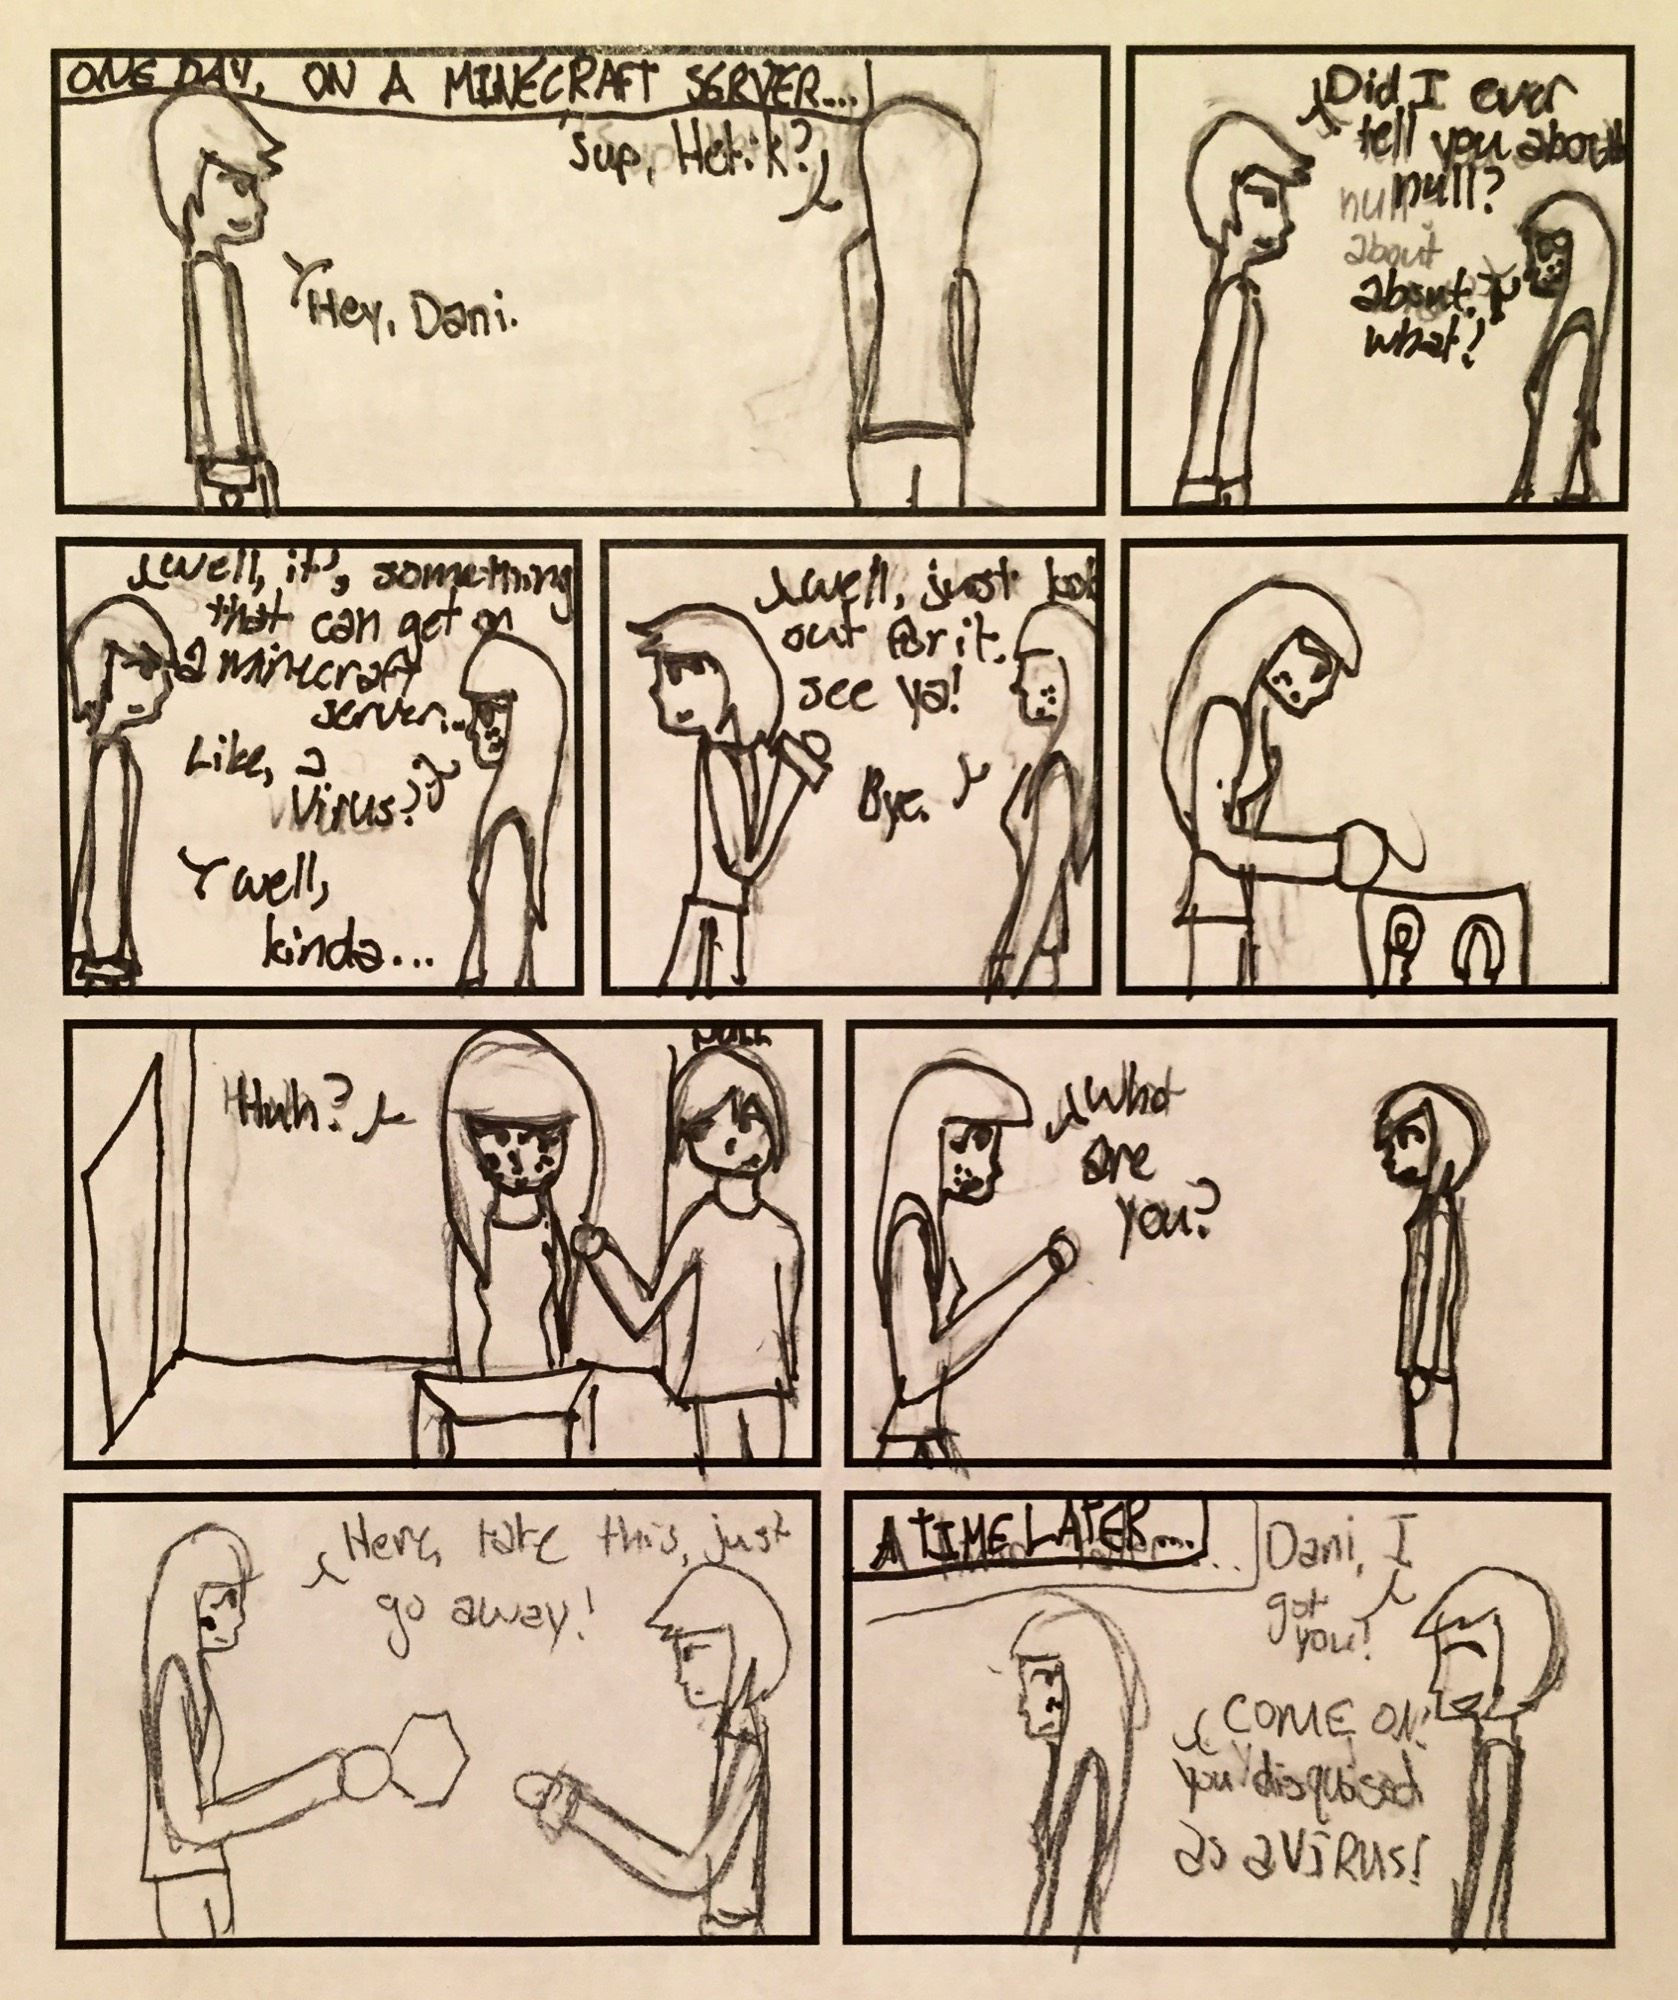 ONE DAY, ON A MINECRAFT SERVER....
'Sup, Hetik?
Hey, Dani.
Did I ever
tell you about
null?
null
about
about
what?
well, it's something
that can get on
a minecraft
server...
Like, a
Virus?
well,
kinda...
well, just look
out for it.
see ya!
Bye.
NULL
Huh?
What
are
you?
Here, take this, just
go away!
A TIME LATER....
Dani, I
got
you!
COME ON!
you disguised
as a VIRUS!